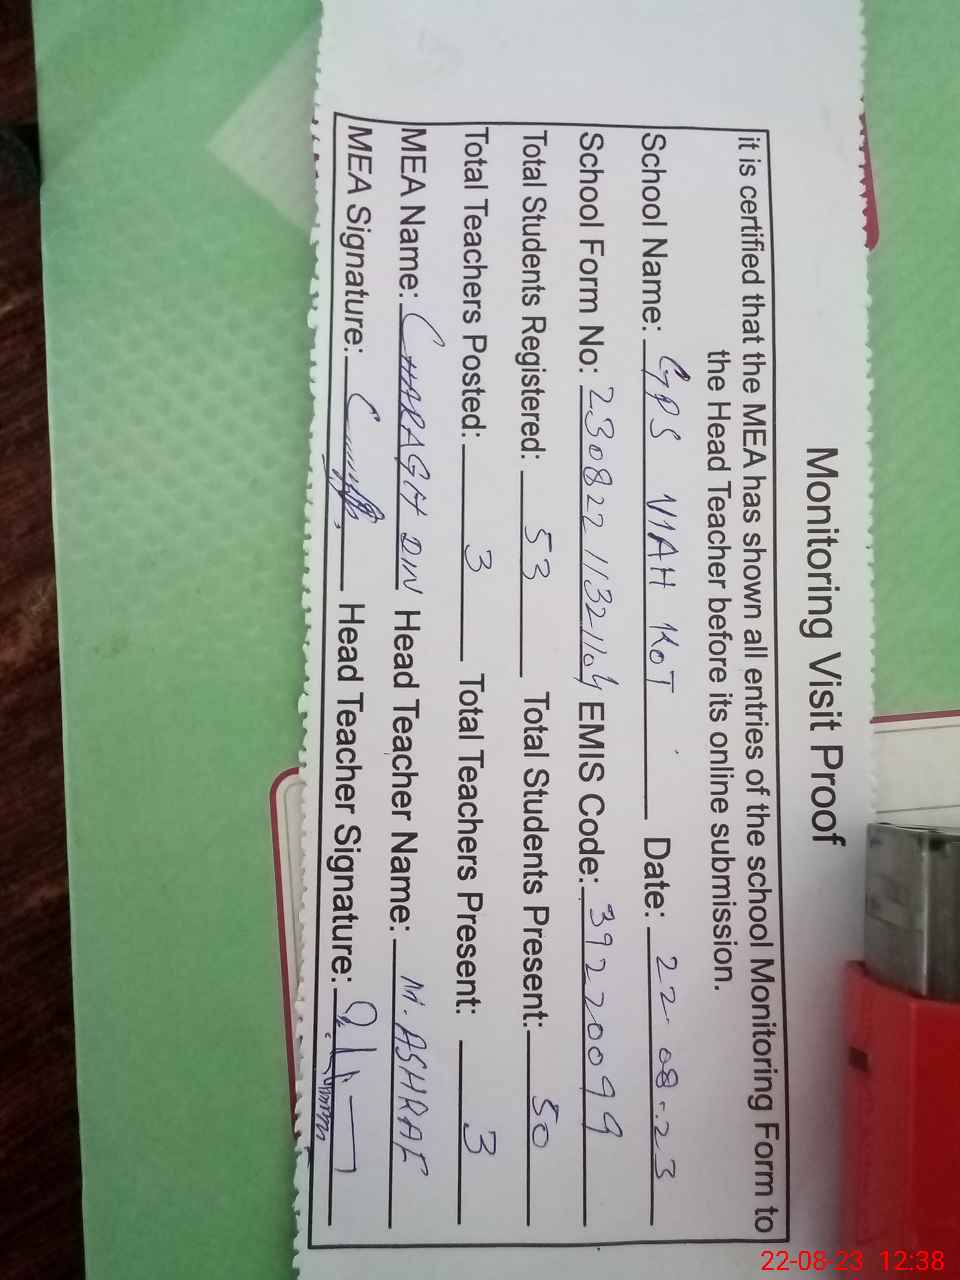 Monitoring Visit Proof
it is certified that the MEA has shown all entries of the school Monitoring Form to
the Head Teacher before its online submission.
School Name: GPS VIAH KOT Date: 22-08-23
School Form No: EMIS Code: 39220099
Total Students Registered: 53 Total Students Present: 50
Total Teachers Posted: 3 Total Teachers Present: 3
MEA Name: CHARAGH DIN Head Teacher Name: M. ASHRAF
MEA Signature: Head Teacher Signature:
22-08-23 12:38